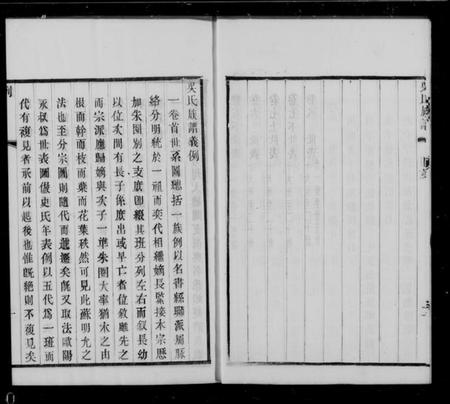 吳氏族譜
吳氏族譜義例
一卷首世系圖總括一族例以名書經聯派屬脈
絡分明統於一祖而奕代相繼嫡長監接本宗懸
加朱圈別之支庶卽綴其班分列左右而叙長幼
以位次間有長子係庶出或早亡者位敘雖先之
而宗派應歸嫡與次子一準朱圈大率猶木之由
根而幹而枝而葉而花葉秩然可見此蘇明允之
法也至分宗圖則隨代而遞遷矣旣又取法歐陽
永叔為世表圖倣史氏年表例以五代為一班而
代有複見者承前以起後也惟旣絕則不複見矣
例
一